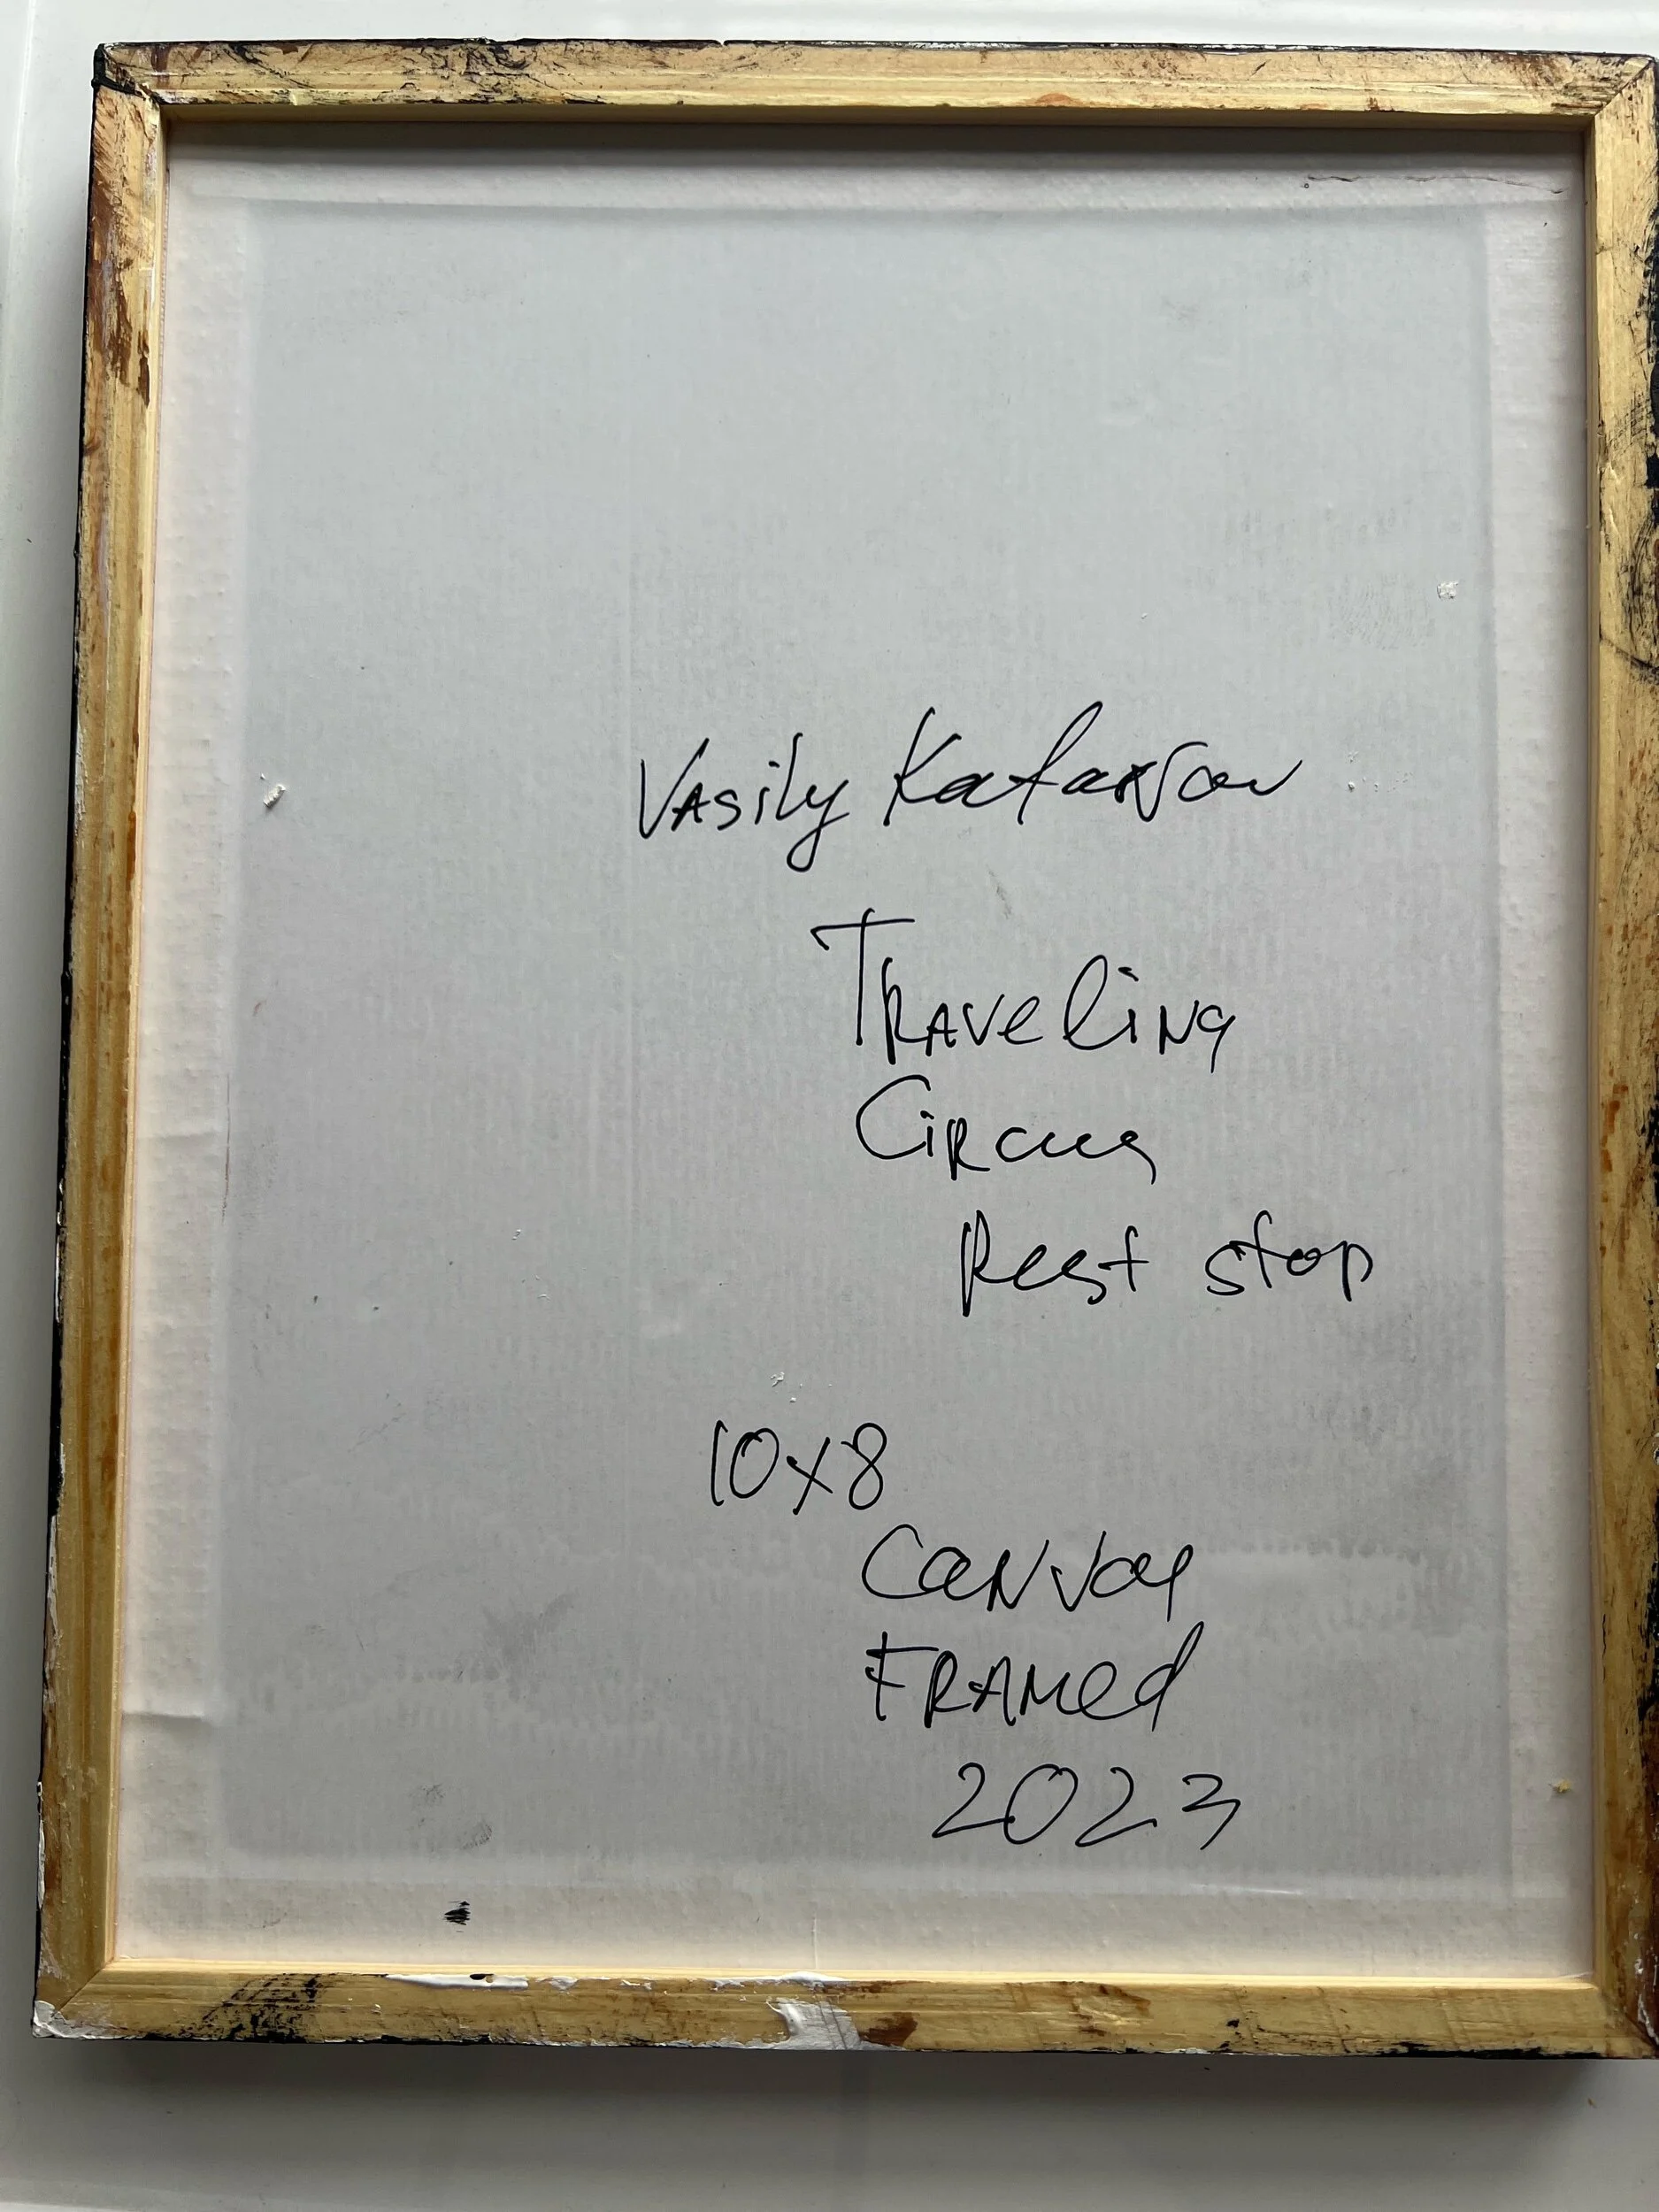 Vasily Katanov
Traveling
Circus
Rest stop
10x8
Canvas
Framed
2023